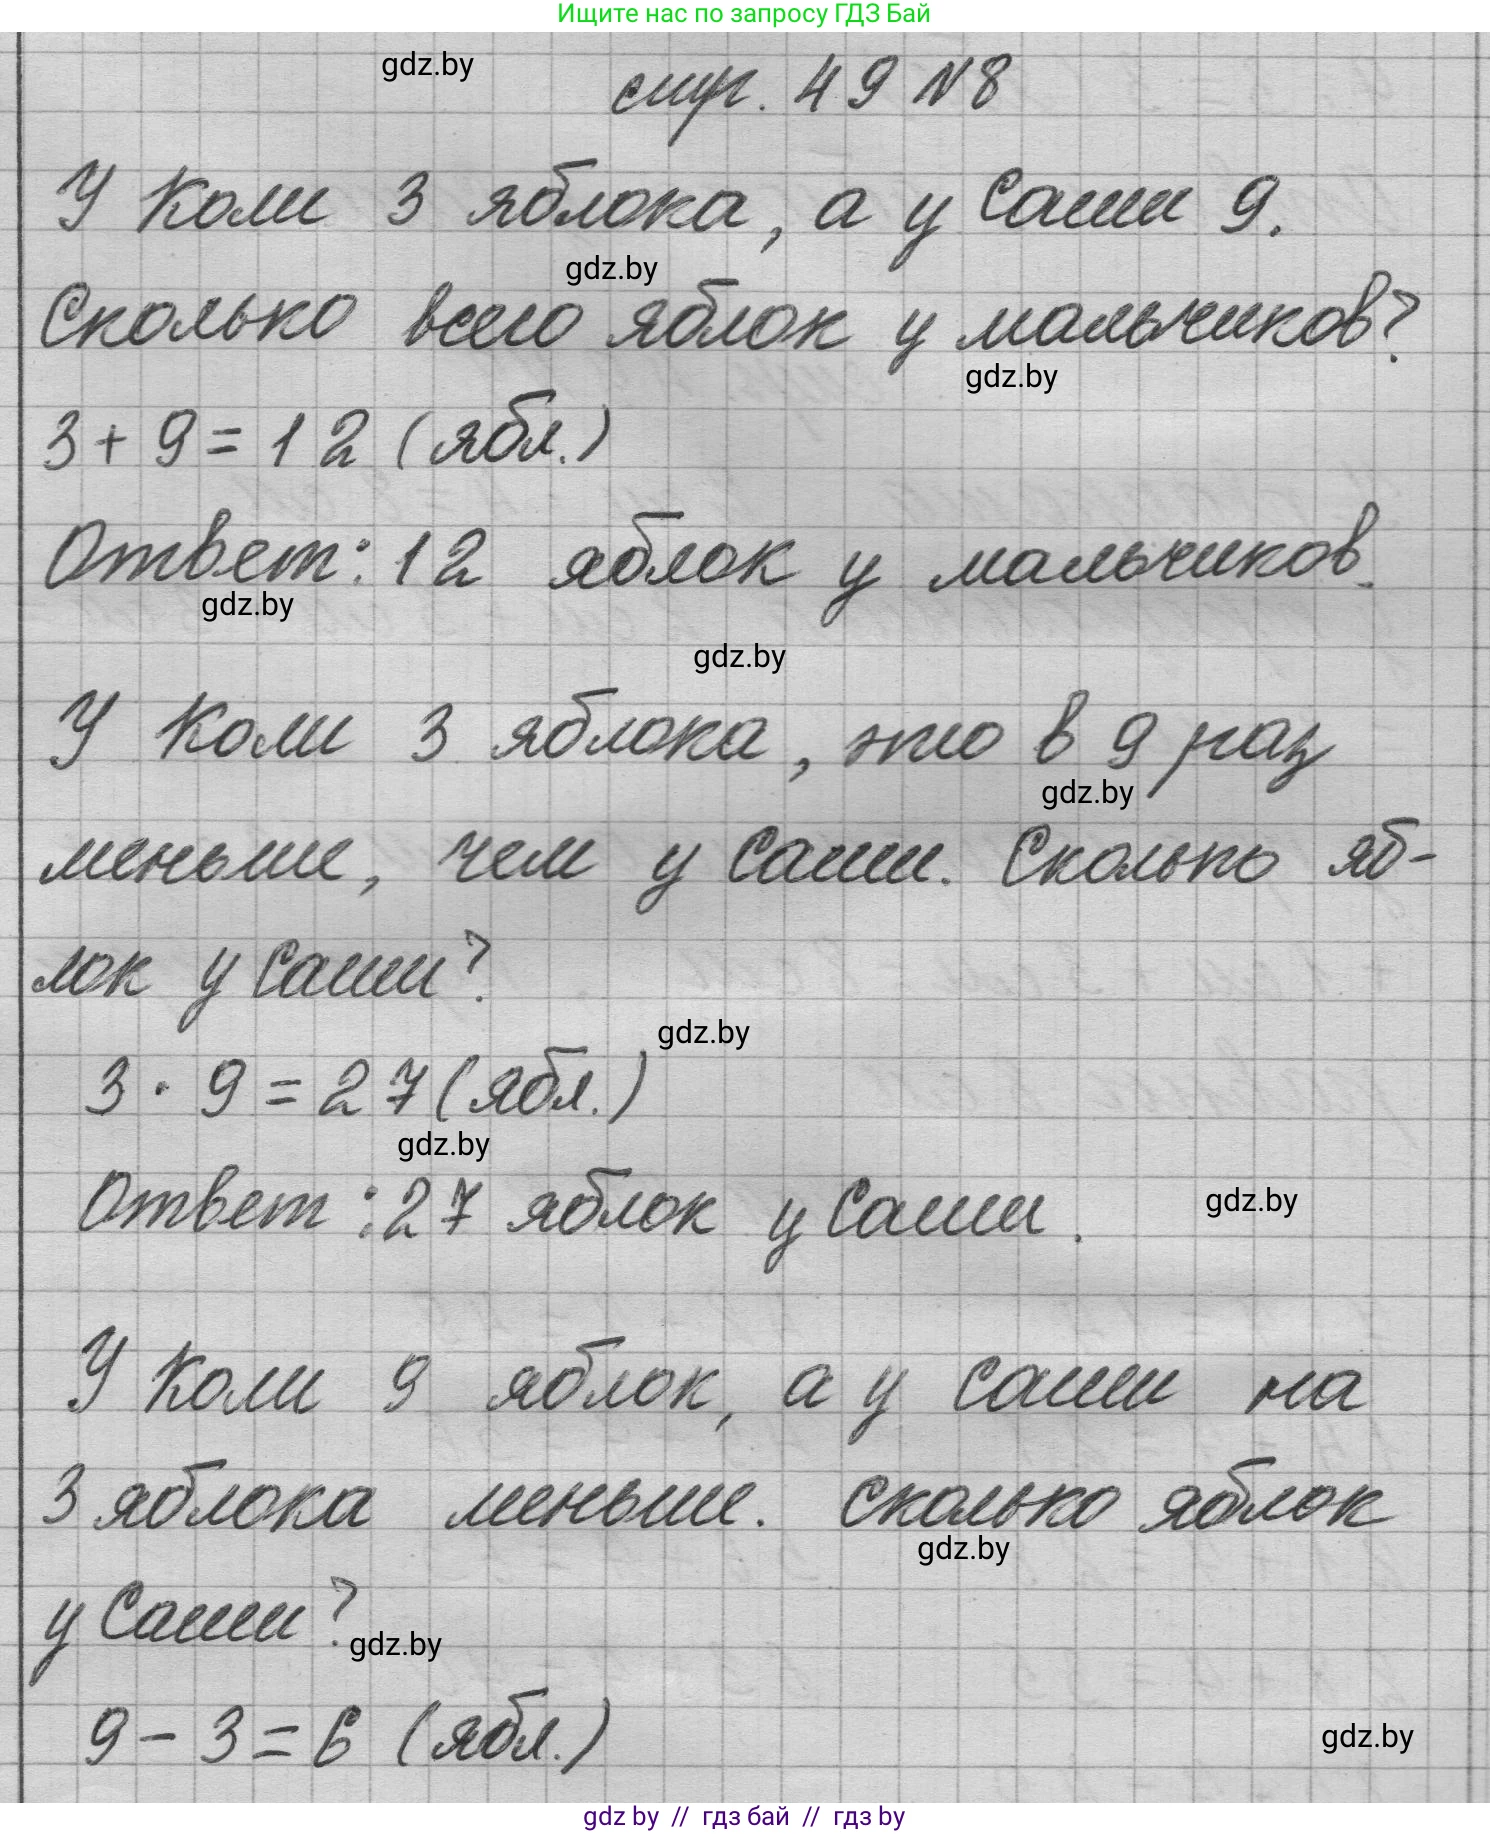 Ищите нас по запросу ГДЗ Бай
gdz.by
стр. 49 №8
У Коли 3 яблока, а у Саши 9.
gdz.by
Сколько всего яблок у мальчиков?
gdz.by
3 + 9 = 12 (ябл.)
Ответ: 12 яблок у мальчиков.
gdz.by
gdz.by
У Коли 3 яблока, это в 9 раз
gdz.by
меньше, чем у Саши. Сколько яб-
лок у Саши?
gdz.by
3 · 9 = 27 (ябл.)
gdz.by
Ответ: 27 яблок у Саши.
gdz.by
У Коли 9 яблок, а у Саши на
3 яблока меньше. Сколько яблок
gdz.by
у Саши?
gdz.by
9 - 3 = 6 (ябл.)
gdz.by
gdz by // гдз бай // гдз by